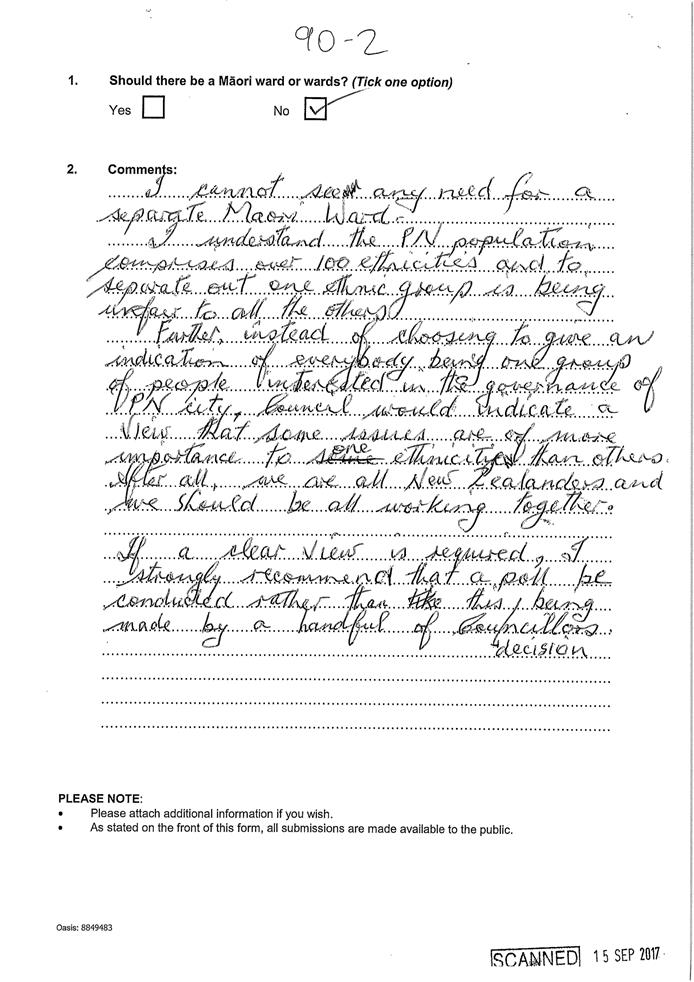 90-2
1. Should there be a Māori ward or wards? (Tick one option)
Yes No
2. Comments:
I cannot see any need for a
separate Maori Ward.
I understand the PN population
comprises over 100 ethnicities and to
separate out one ethnic group is being
unfair to all the others.
Further, instead of choosing to give an
indication of everybody being one group
of people interested in the governance of
PN city, Council would indicate a
view that some issues are of more
importance to one ethnicity than others.
After all, we are all New Zealanders and
we should be all working together.
If a clear view is required, I
strongly recommend that a poll be
conducted rather than this being
made by a handful of Councillors.
decision
PLEASE NOTE:
• Please attach additional information if you wish.
• As stated on the front of this form, all submissions are made available to the public.
Oasis: 8849483
SCANNED 15 SEP 2017